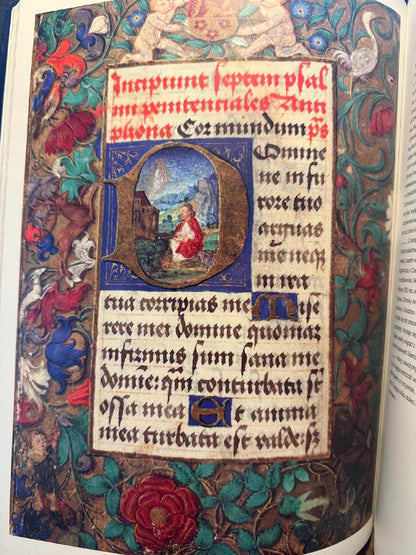 Incipiunt septem psal
mi penitenciales Anti
phona Cor mundum ps
Domine
ne in fu
rore tuo
arguas
me neq
in ira
tua corripias me Mise
rere mei domine quoniam
infirmus sum sana me
domine: qm conturbata st
ossa mea Et anima
mea turbata est valde: sz